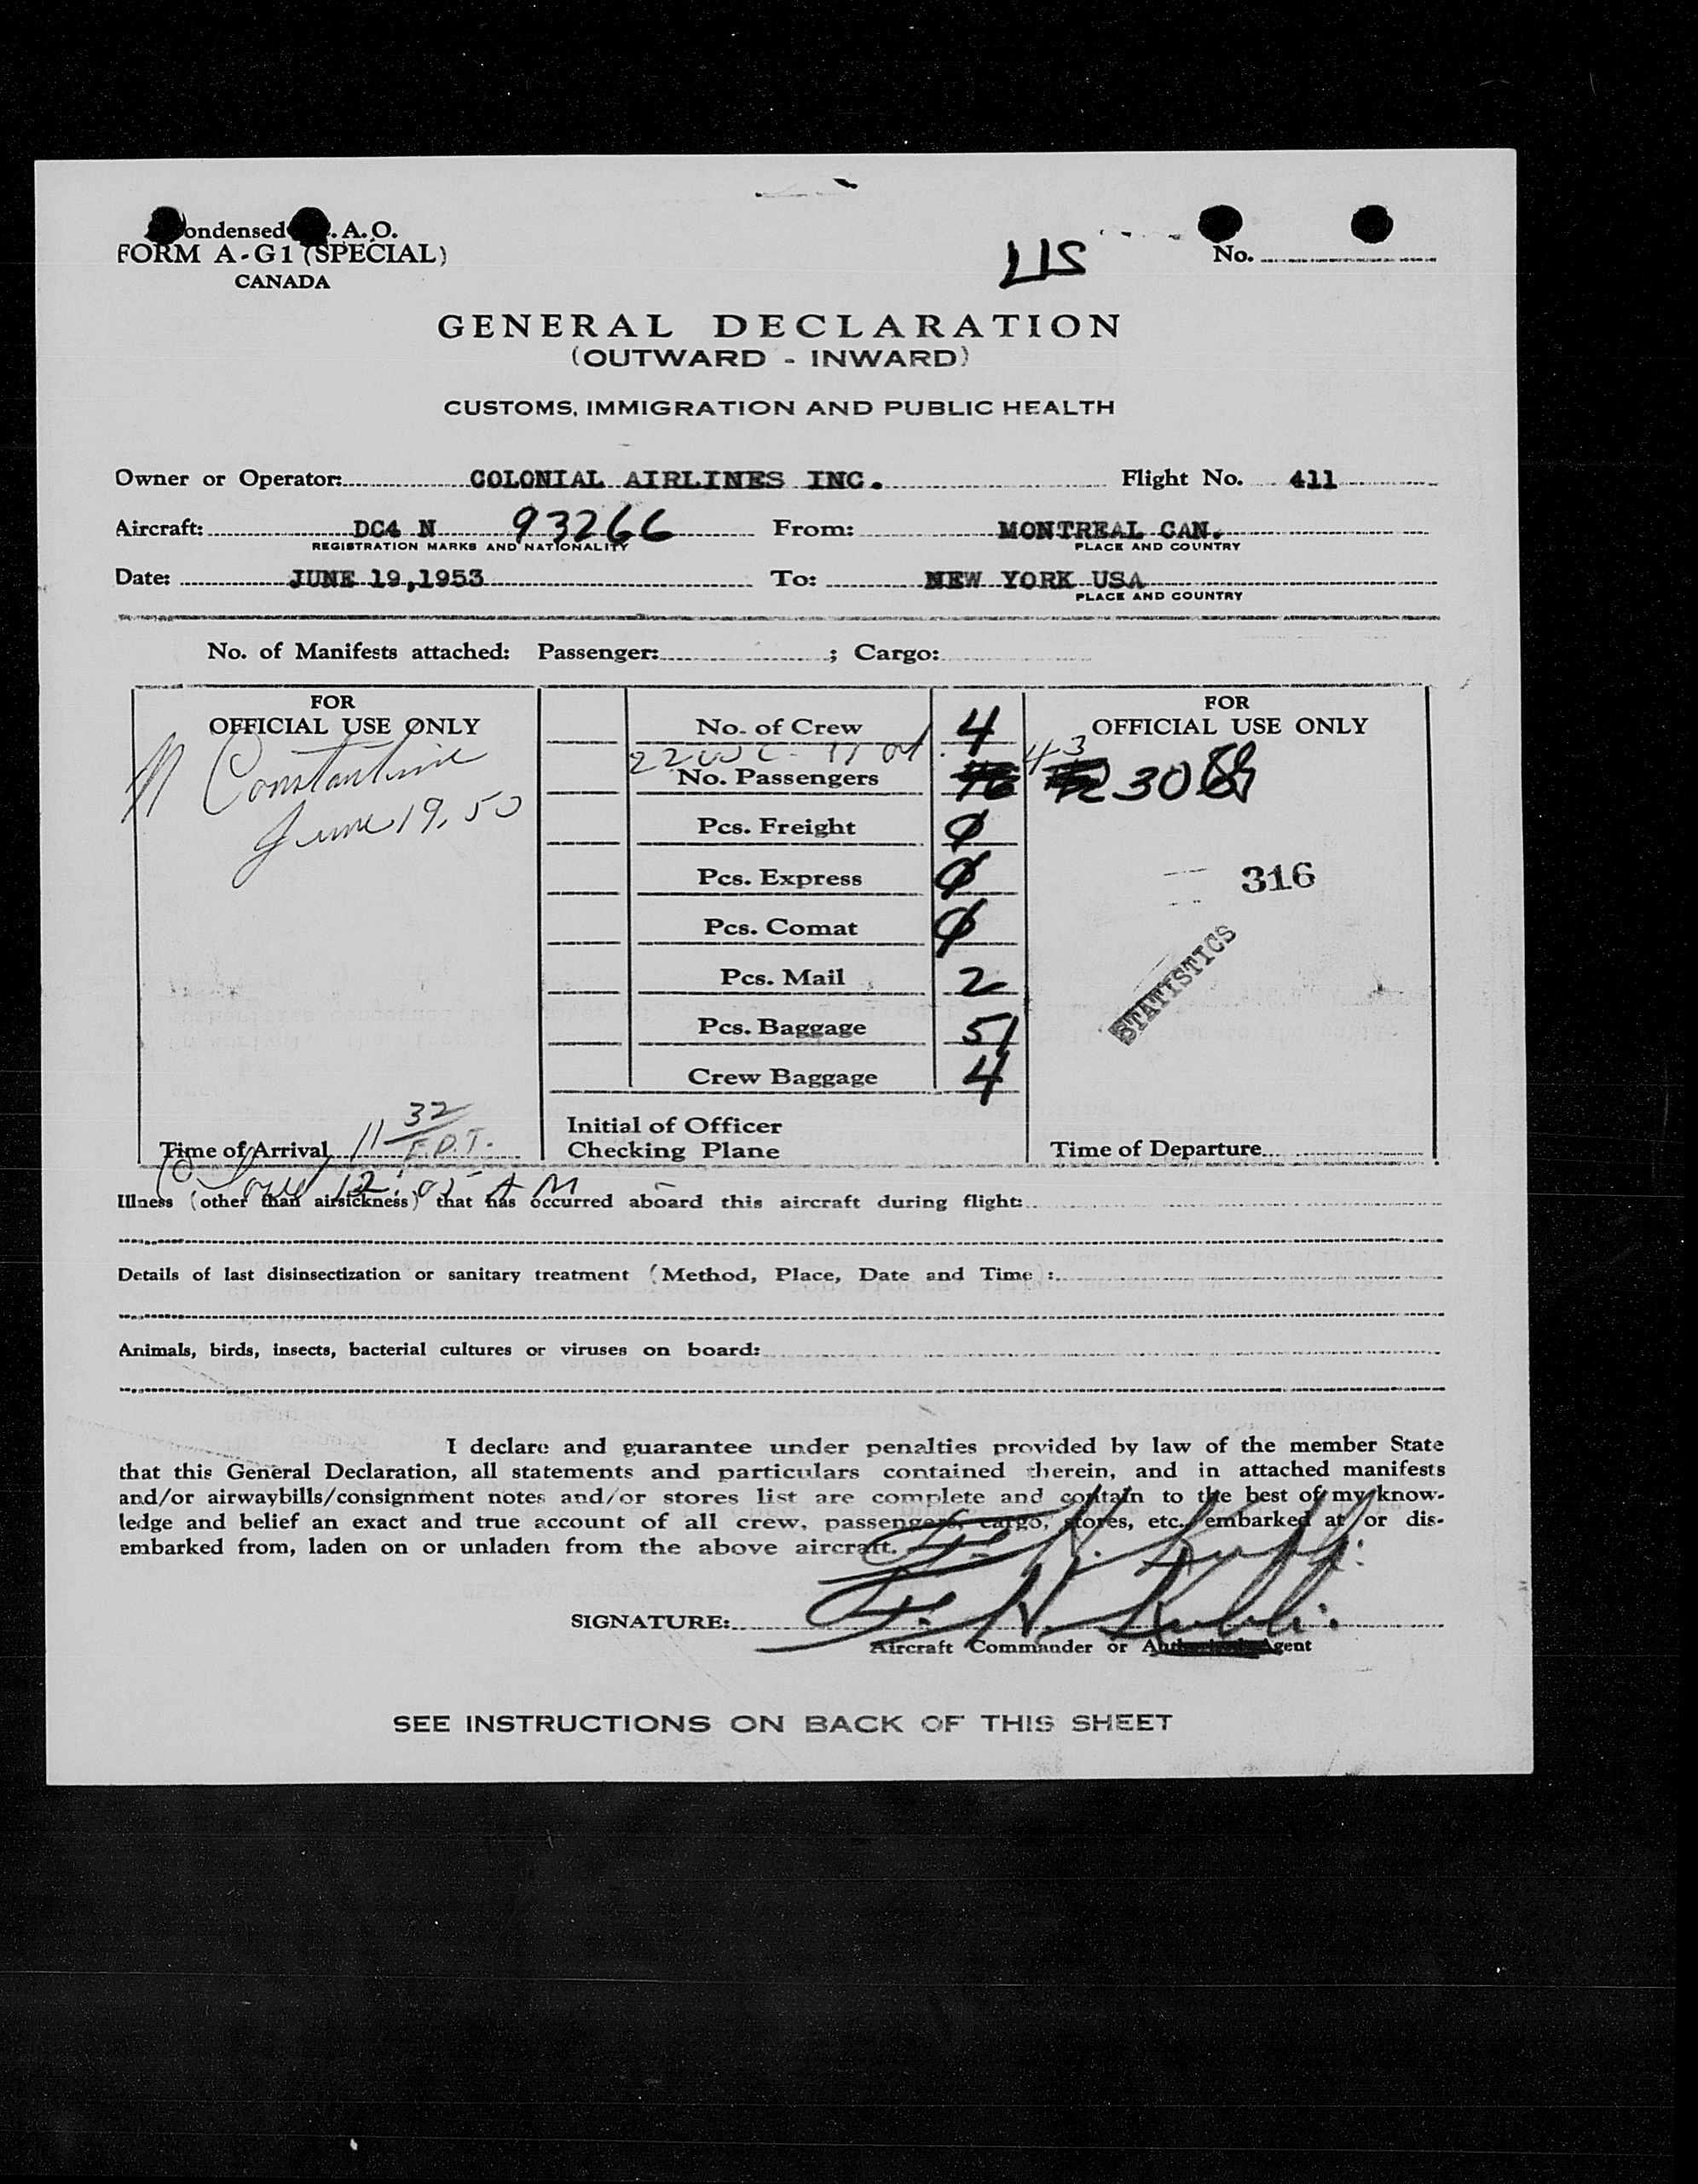 ondensed . A. O.
FORM A-G1 (SPECIAL)
CANADA
US
No.
GENERAL DECLARATION
(OUTWARD - INWARD)
CUSTOMS, IMMIGRATION AND PUBLIC HEALTH
Owner or Operator: COLONIAL AIRLINES INC. Flight No. 411
Aircraft: DC4 N 93266 From: MONTREAL CAN.
REGISTRATION MARKS AND NATIONALITY PLACE AND COUNTRY
Date: JUNE 19,1953 To: NEW YORK USA
PLACE AND COUNTRY
No. of Manifests attached: Passenger: ; Cargo:
FOR
OFFICIAL USE ONLY
Constantine
June 19, 50
Time of Arrival 11 32 E.D.T.
No. of Crew 4
No. Passengers
Pcs. Freight ϕ
Pcs. Express ϕ
Pcs. Comat ϕ
Pcs. Mail 2
Pcs. Baggage 51
Crew Baggage 4
Initial of Officer
Checking Plane
FOR
OFFICIAL USE ONLY
43
30
316
STATISTICS
Time of Departure
Illness (other than airsickness) that has occurred aboard this aircraft during flight:
Details of last disinsectization or sanitary treatment (Method, Place, Date and Time) :
Animals, birds, insects, bacterial cultures or viruses on board:
I declare and guarantee under penalties provided by law of the member State
that this General Declaration, all statements and particulars contained therein, and in attached manifests
and/or airwaybills/consignment notes and/or stores list are complete and contain to the best of my know-
ledge and belief an exact and true account of all crew, passengers, cargo, stores, etc. embarked at or dis-
embarked from, laden on or unladen from the above aircraft.
SIGNATURE: F. H.
Aircraft Commander or Authorized Agent
SEE INSTRUCTIONS ON BACK OF THIS SHEET